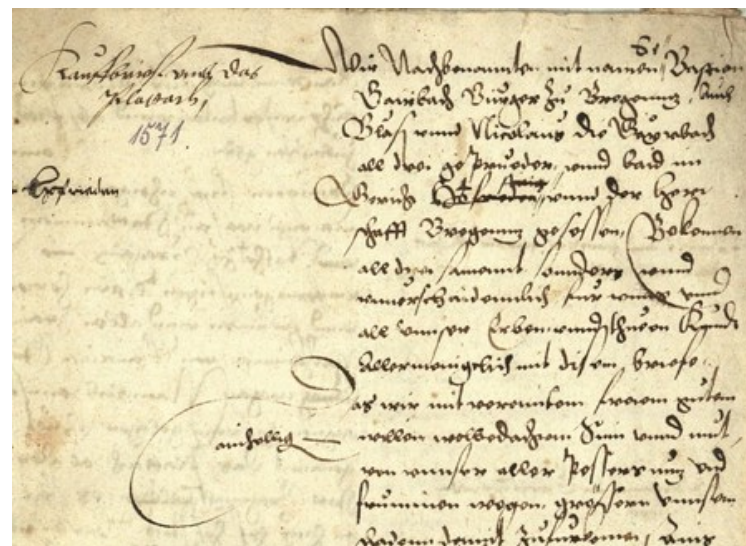 Kauffbrief umb das
1571
Wir Nachbenannten mit namen, Bastion
Bairbach Burger zu Bregenntz, auch
Blasi unnd Nicolaus die Bayrbach
all drei geprueder, unnd baid im
Gericht unnd der herr
schafft Bregenntz gesessen, Bekennen
all drei samennt, sonders unnd
unverschaidennlich fur unns unnd
all unnser Erben, unnd thuen Kundt
Allermenigclich mit disem briefe,
Das wir mit vereintem freiem gutem
ainhellig
willen wolbedachtem Sinn unnd mut,
von unnser aller Pesserung und
frummen wegen, grössern unnsern
schaden damit zufurkomen, ains